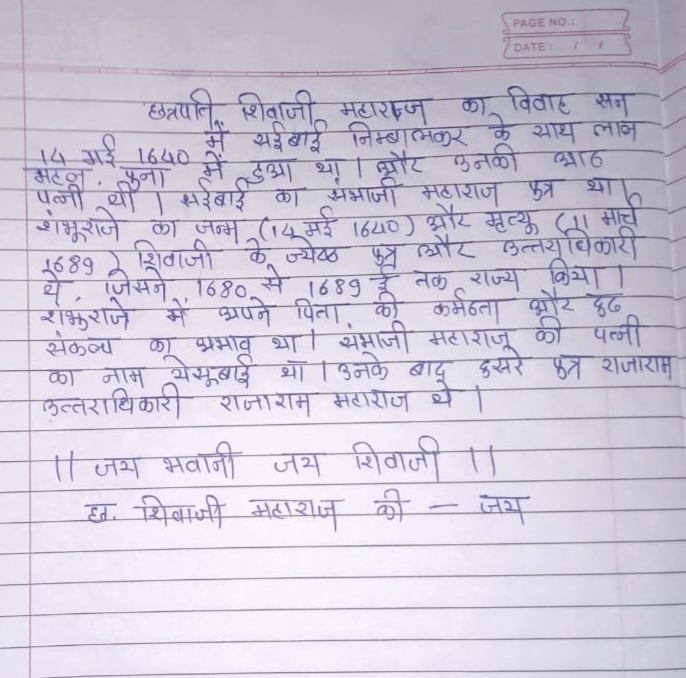 PAGE NO.:
DATE: / /
छत्रपति शिवाजी महाराज का विवाह सन
14 मई 1640 में सईबाई निम्बालकर के साथ लाल
महल, पुना में हुआ था। और उनकी आठ
पत्नी थी। सईबाई का संभाजी महाराज पुत्र था।
शंभूराजे का जन्म (14 मई 1640) और मृत्यू (11 मार्च
1689) शिवाजी के ज्येष्ठ पुत्र और उत्तराधिकारी
थे, जिसने 1680 से 1689 ई तक राज्य किया।
शंभुराजे में अपने पिता की कर्मठता और दृढ
संकल्प का अभाव था। संभाजी महाराज की पत्नी
का नाम येसूबाई था। उनके बाद दुसरे पुत्र राजाराम
उत्तराधिकारी राजाराम महाराज थे।
|| जय भवानी जय शिवाजी ||
छ. शिवाजी महाराज की – जय